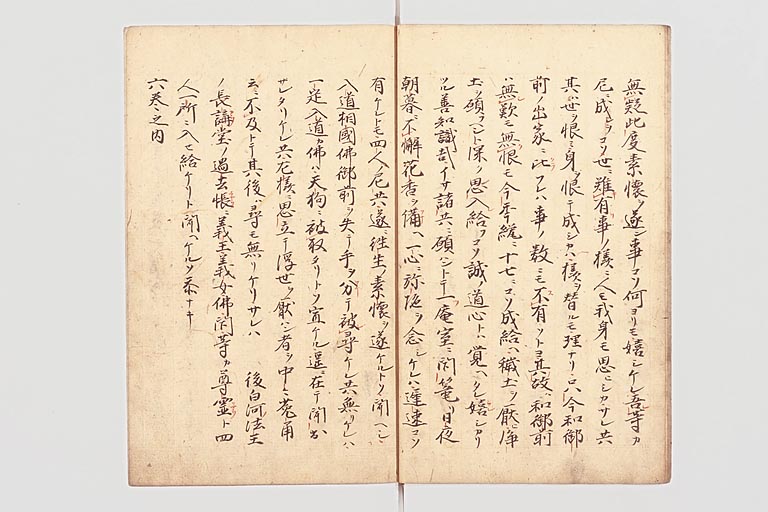 無疑此度素懐ヲ遂ン事コソ何ヨリモ嬉シケレ吾等カ
尼ニ成シヲコソ世ニ難有事ノ様ニ人モ我身モ思ヒシカサレ共
其ハ世ヲ恨ミ身ヲ恨テ成シカハ様ヲ替ルモ理ナリ只今和御
前ノ出家ニ比フレハ事ノ数ニモ不有ツトヨ其故ハ和御前
ハ無歎モ無恨モ今年纔ニ十七ニコソ成給ヘ穢土ヲ厭ヒ浄
土ヲ願ハントト深ク思入給コソ誠ノ道心トハ覚ヘタレ嬉シカリ
ツル善知識哉イサ諸共ニ願ハントテ一庵室ニ閇篭リ日夜
朝暮ニ不懈花香ヲ備ヘ一心ニ弥陀ヲ念シケレハ遅速コソ
有ケレトモ四人ノ尼共遂ニ往生ノ素懐ヲ遂ケルトソ聞ヘシ
入道相國佛御前ヲ失テ手ヲ分テ被尋ケレ共無リケレハ
一定入道カ佛ハ天狗ニ被取タリトソ宣ケル遥ニ在テ聞出
サレタリケレ共左様ニ思立テ浮世ヲ厭ハン者ヲ中々兎角
云ニ不及トテ其後ハ尋モ無リケリサレハ 後白河法王
ノ長講堂ノ過去帳ニ義王義女佛閇等カ尊霊ト四
人一所ニ入セ給ケリト聞ヘケルソ忝ナキ
六巻之内